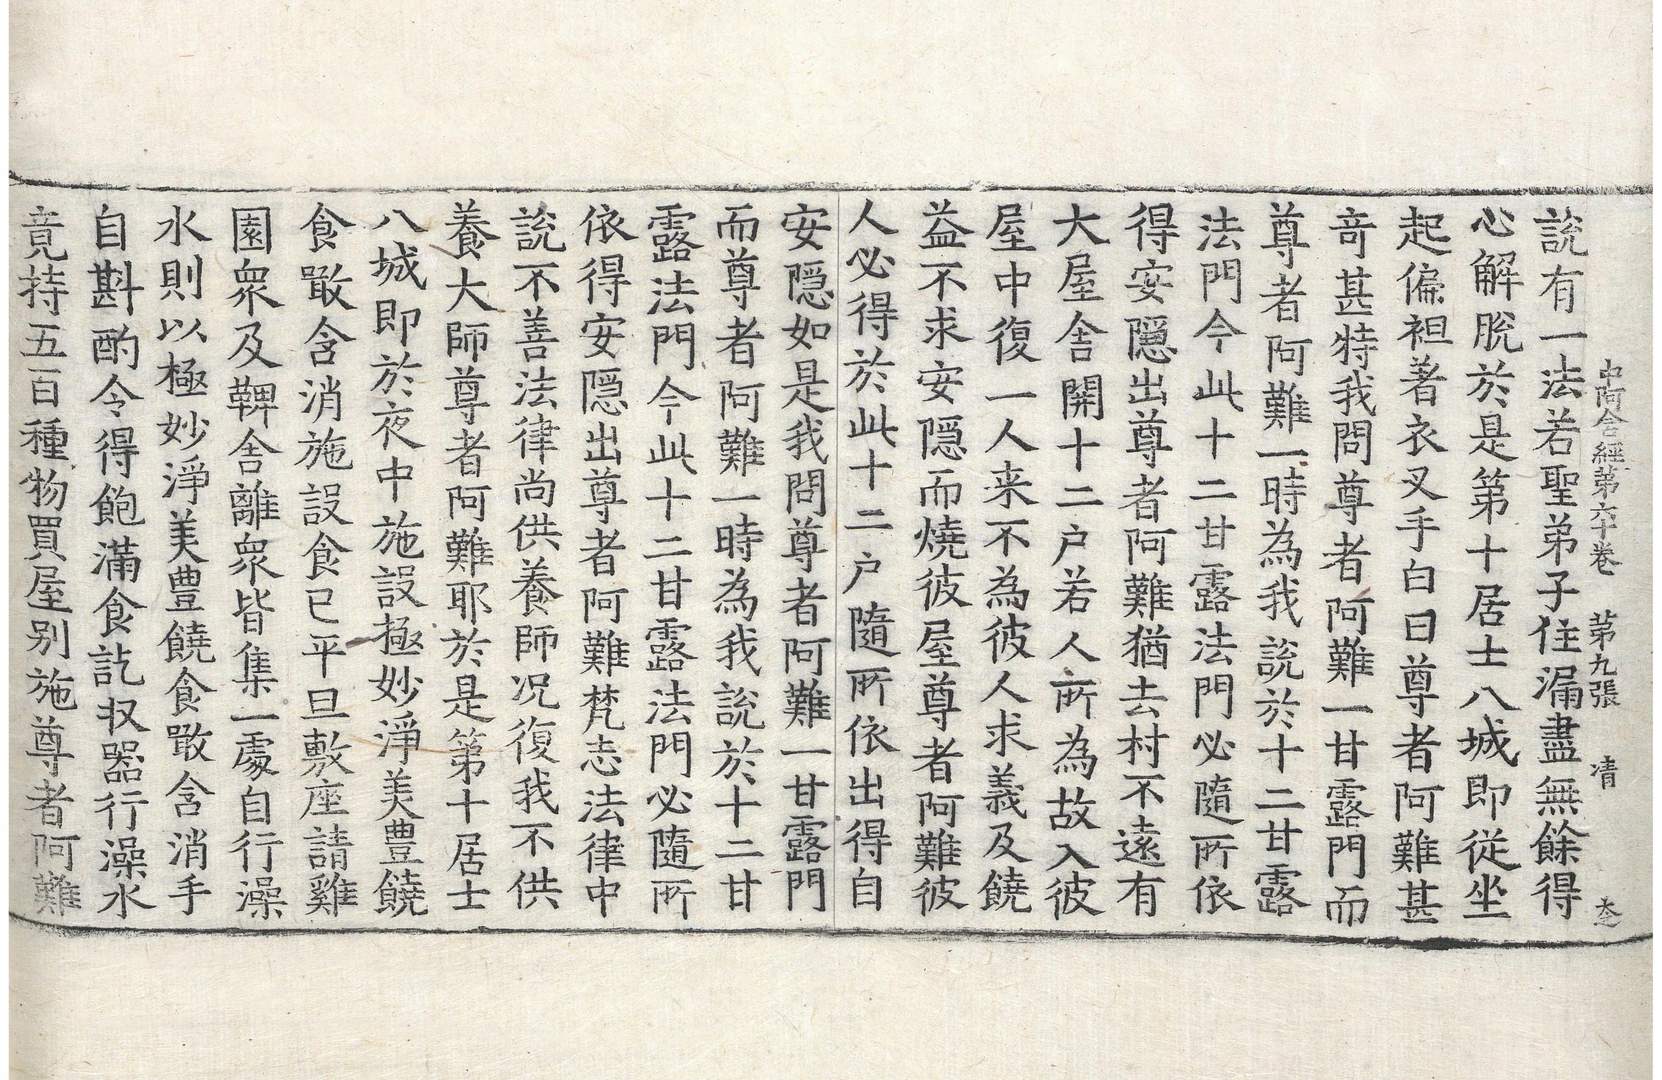 中阿含經第六十卷　第九張　凊
說有一法若聖弟子住漏盡無餘得
心解脫於是第十居士八城即從坐
起偏袒著衣叉手白曰尊者阿難甚
竒甚特我問尊者阿難一甘露門而
尊者阿難一時為我說於十二甘露
法門今此十二甘露法門必隨所依
得安隱出尊者阿難猶去村不遠有
大屋舍開十二户若人所為故入彼
屋中復一人来不為彼人求義及饒
益不求安隱而燒彼屋尊者阿難彼
人必得於此十二户隨所依出得自
安隱如是我問尊者阿難一甘露門
而尊者阿難一時為我說於十二甘
露法門今此十二甘露法門必隨所
依得安隱出尊者阿難梵志法律中
說不善法律尚供養師况復我不供
養大師尊者阿難耶於是第十居士
八城即於夜中施設極妙淨美豊饒
食噉含消施設食已平旦敷座請雞
園衆及鞞舍離衆皆集一處自行澡
水則以極妙淨美豊饒食噉含消手
自斟酌令得飽滿食訖収器行澡水
竟持五百種物買屋别施尊者阿難